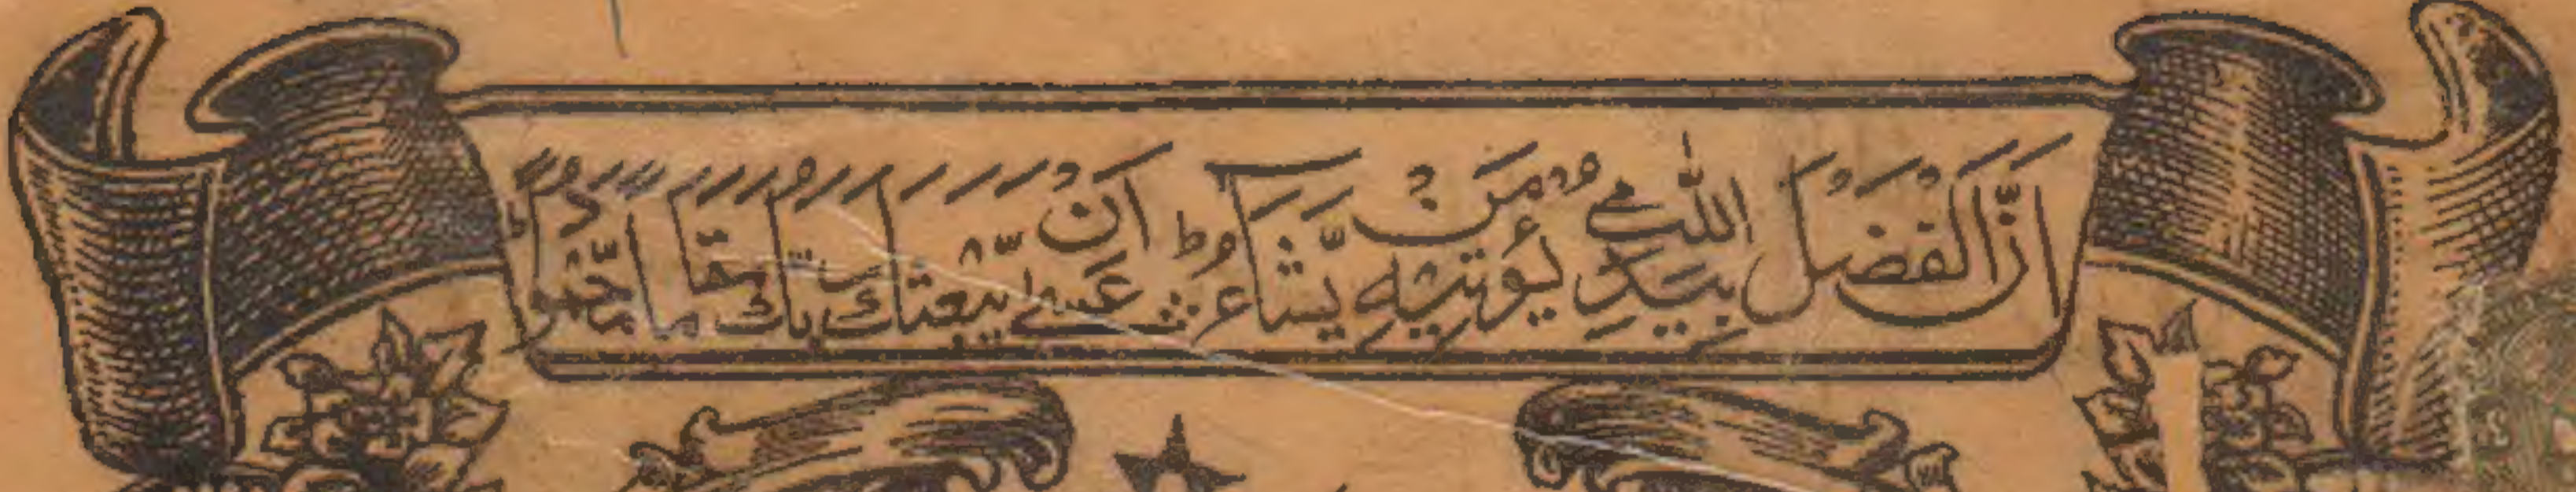 اِنَّ الْفَضْلَ بِيَدِ اللّٰهِ يُؤْتِيْهِ مَنْ يَّشَآءُ ط عَسٰٓى اَنْ يَّبْعَثَكَ رَبُّكَ مَقَامًا مَّحْمُوْدًا ط